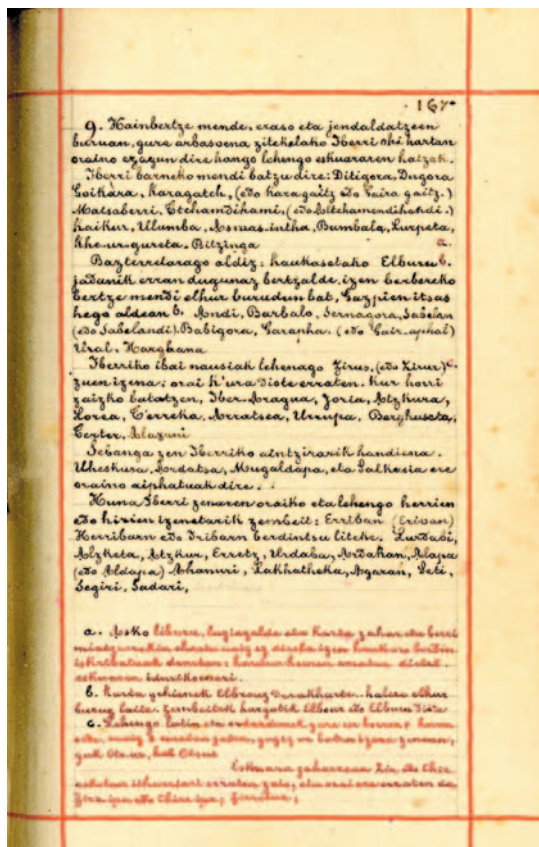 167
9. Hainbertze mende, eraso eta jendaldatzeen
buruan, gure arbasoena zitekelako Iberri ohi hartan
oraino ezagun dire hango lehengo eskuararen hatzak.
Iberri barneko mendi batzu dire: Ditigora, Dugora
Goikara, Karagatch, (edo haragaitz edo Gaira gaitz.)
Matsaberri, Etchamdihami, (edo
Kaikur, Ulumba, Asmas-intha, Bumbala, Lurpeta,
Khe-ur-gureta. Bitzinga a.
Bazterretarago aldiz: haukasetako Elburu b.
jadanik erran dugunaz bertzalde, izen berbereko
bertze mendi elhur burudun bat, Gazpien itsas
hego aldean b. Andi, Barbalo, Sernagora, Sabelan
(edo Sabelandi). Babigora, Garapha. (edo Gair-aphal)
Ural. Harghana
Iberriko ibai nausiak lehenago Zirus, (edo Zirur) c.
zuen izena: orai K'ura diote erraten. Kur horri
zaizko batatzen, Iber-Aragua, Joria, Atzkura,
Lorea, G'erreka, Arratsea, Urrupa, Berghuseta,
Gezter, Alazani
Sebanga zen Iberriko aintzirarik handiena.
Uheskura, Ardatsa, Mugaldapa, eta Galkasia ere
oraino aiphatuak dire.
Huna Iberri zenaren oraiko eta lehengo herrien
edo hirien izenetarik zembeit: Erriban (Erivan)
Herribarn edo Iribarn berdintsu liteke. Lurdabi,
Alzketa, Atzkur, Erretz, Urdaba, Ardahan, Alapa
(edo Aldapa) Ahanuri, Lakhatheka, Agaran, Seti,
Segiri, Sadari,
a. Asko liburu, lugiegalde eta Karta zahar eta berri
b. Karta gehienek Elbrouz derakharte. halere elhur
buruz baitez zembeitek hargatik Elbour edo Elburu diote
c. Lehengo latin eta
Eskuara zaharrean Zir edo Chir